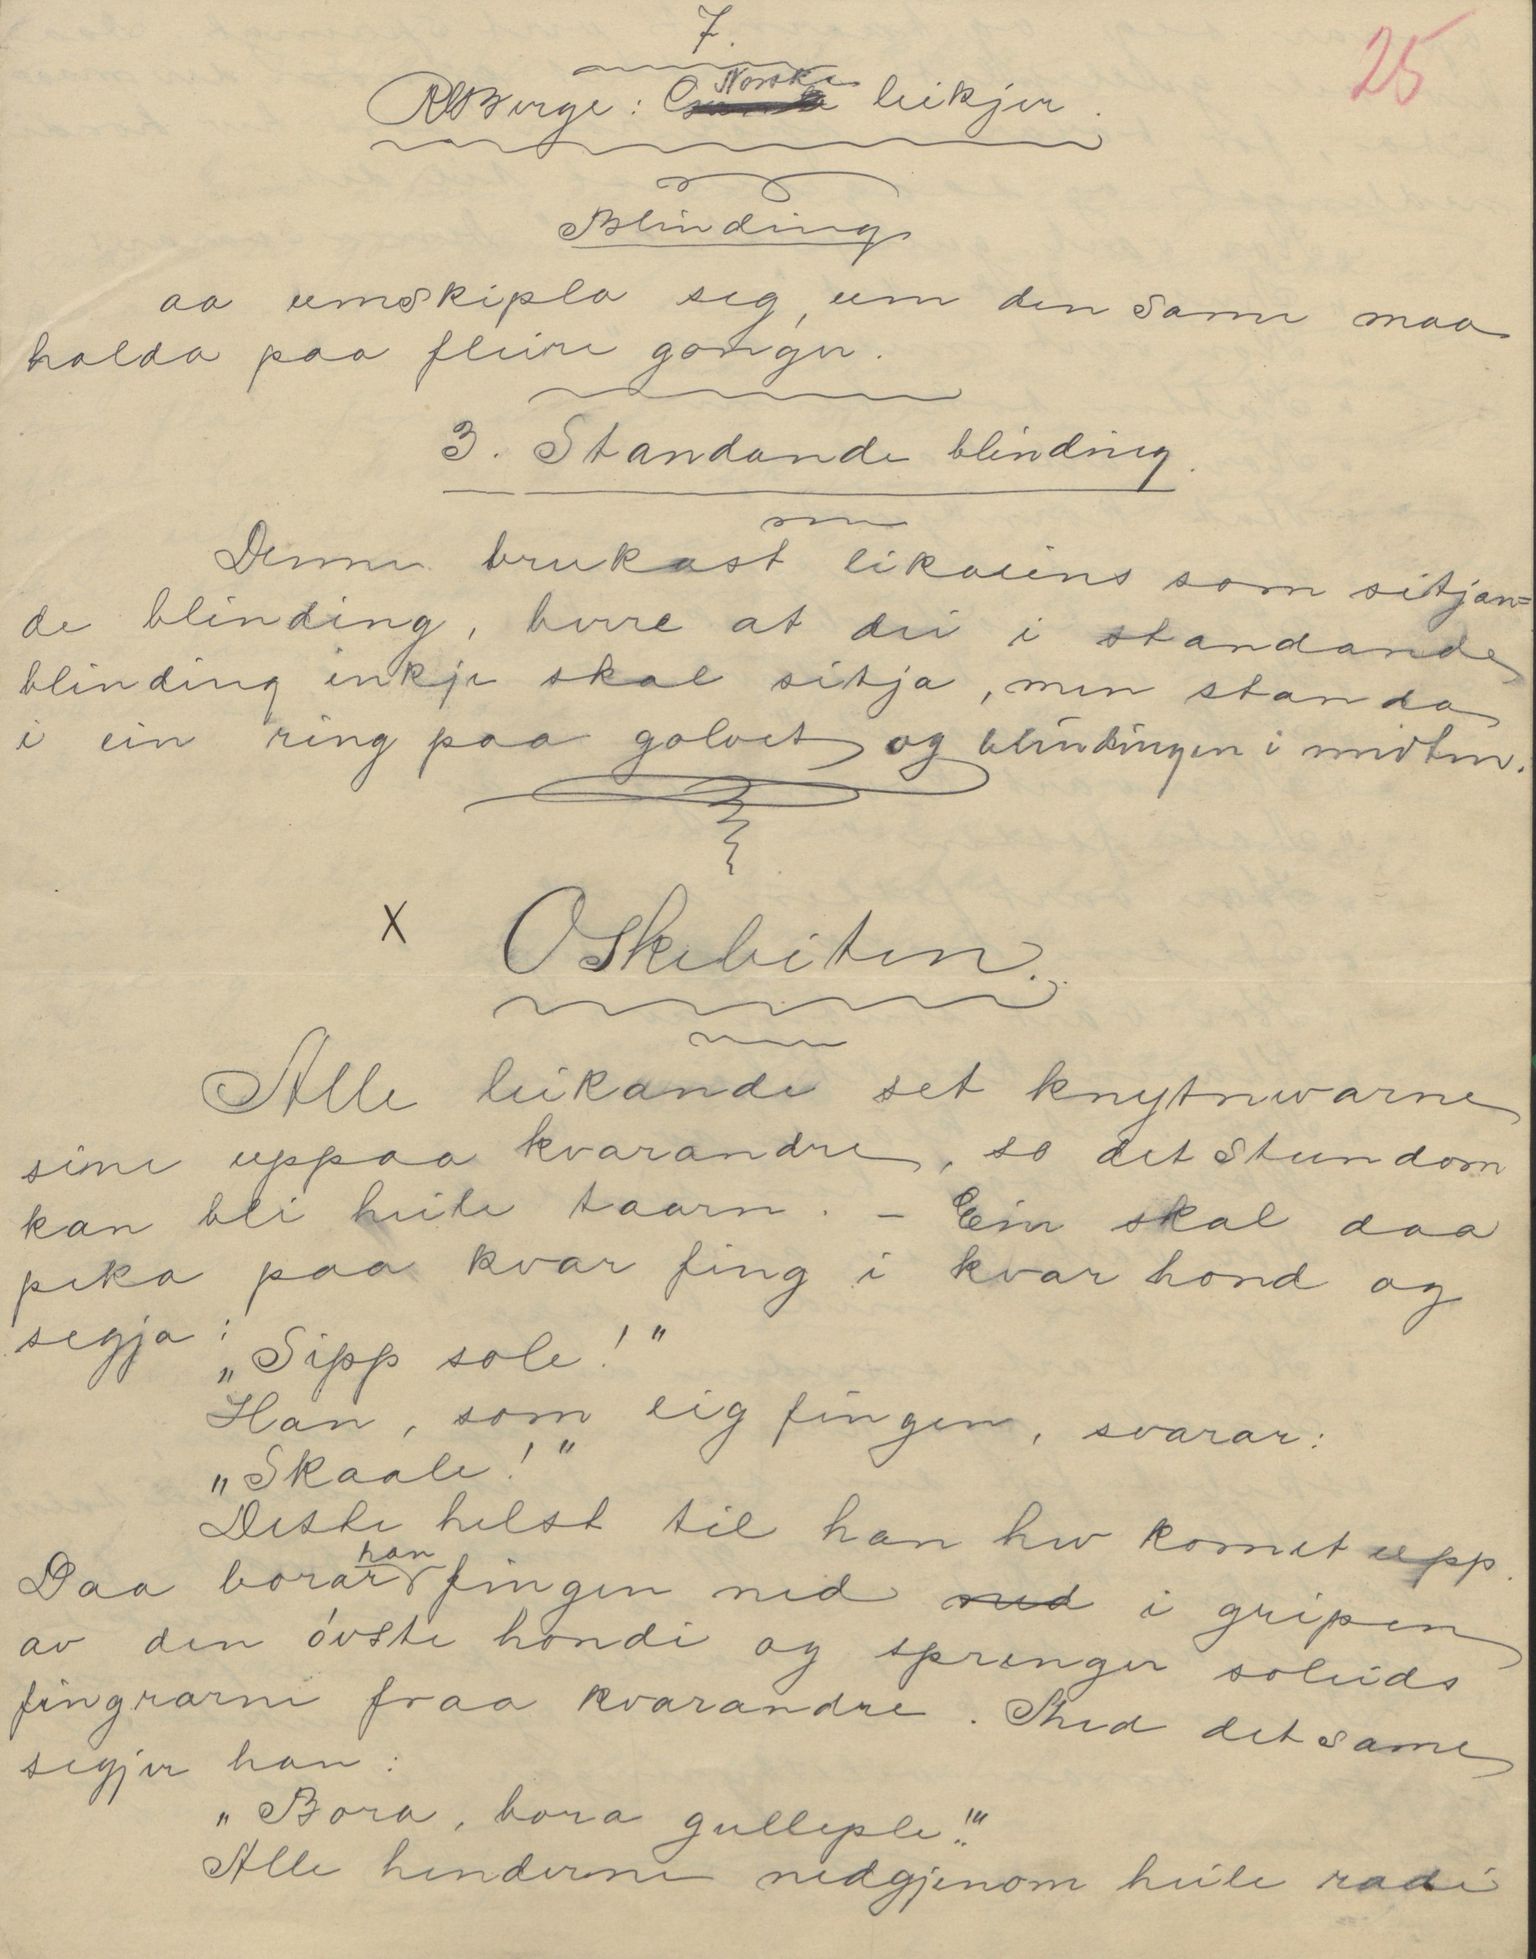 7.
25
RBerge: Norske leikjer.
Blinding
aa umskipla seg, um den same maa
halda paa fleire gonger.
3. Standande blinding.
Denne brukast likaeins som sitjan=
de blinding, berre at dei i standande
blinding inkje skal sitja, men standa
i ein ring paa golvet og blindingen i midten.
X Oskebiten.
Alle leikande set knytnevarne
sine uppaa kvarandre, so det stundom
kan bli heile taarn. – Ein skal daa
peka paa kvar fing i kvar hond og
segja:
„Sipp sole!"
Han, som eig fingen, svarar:
„Skaale!"
Deste helst til han hev komet upp.
Daa borar han fingen ned ned i gripen
av den óvste hondi og sprenger soleids
fingrarne fraa kvarandre. Med det same
segjer han:
„Bora, bora gulleple!"
Alle henderne nedgjenom heile radi